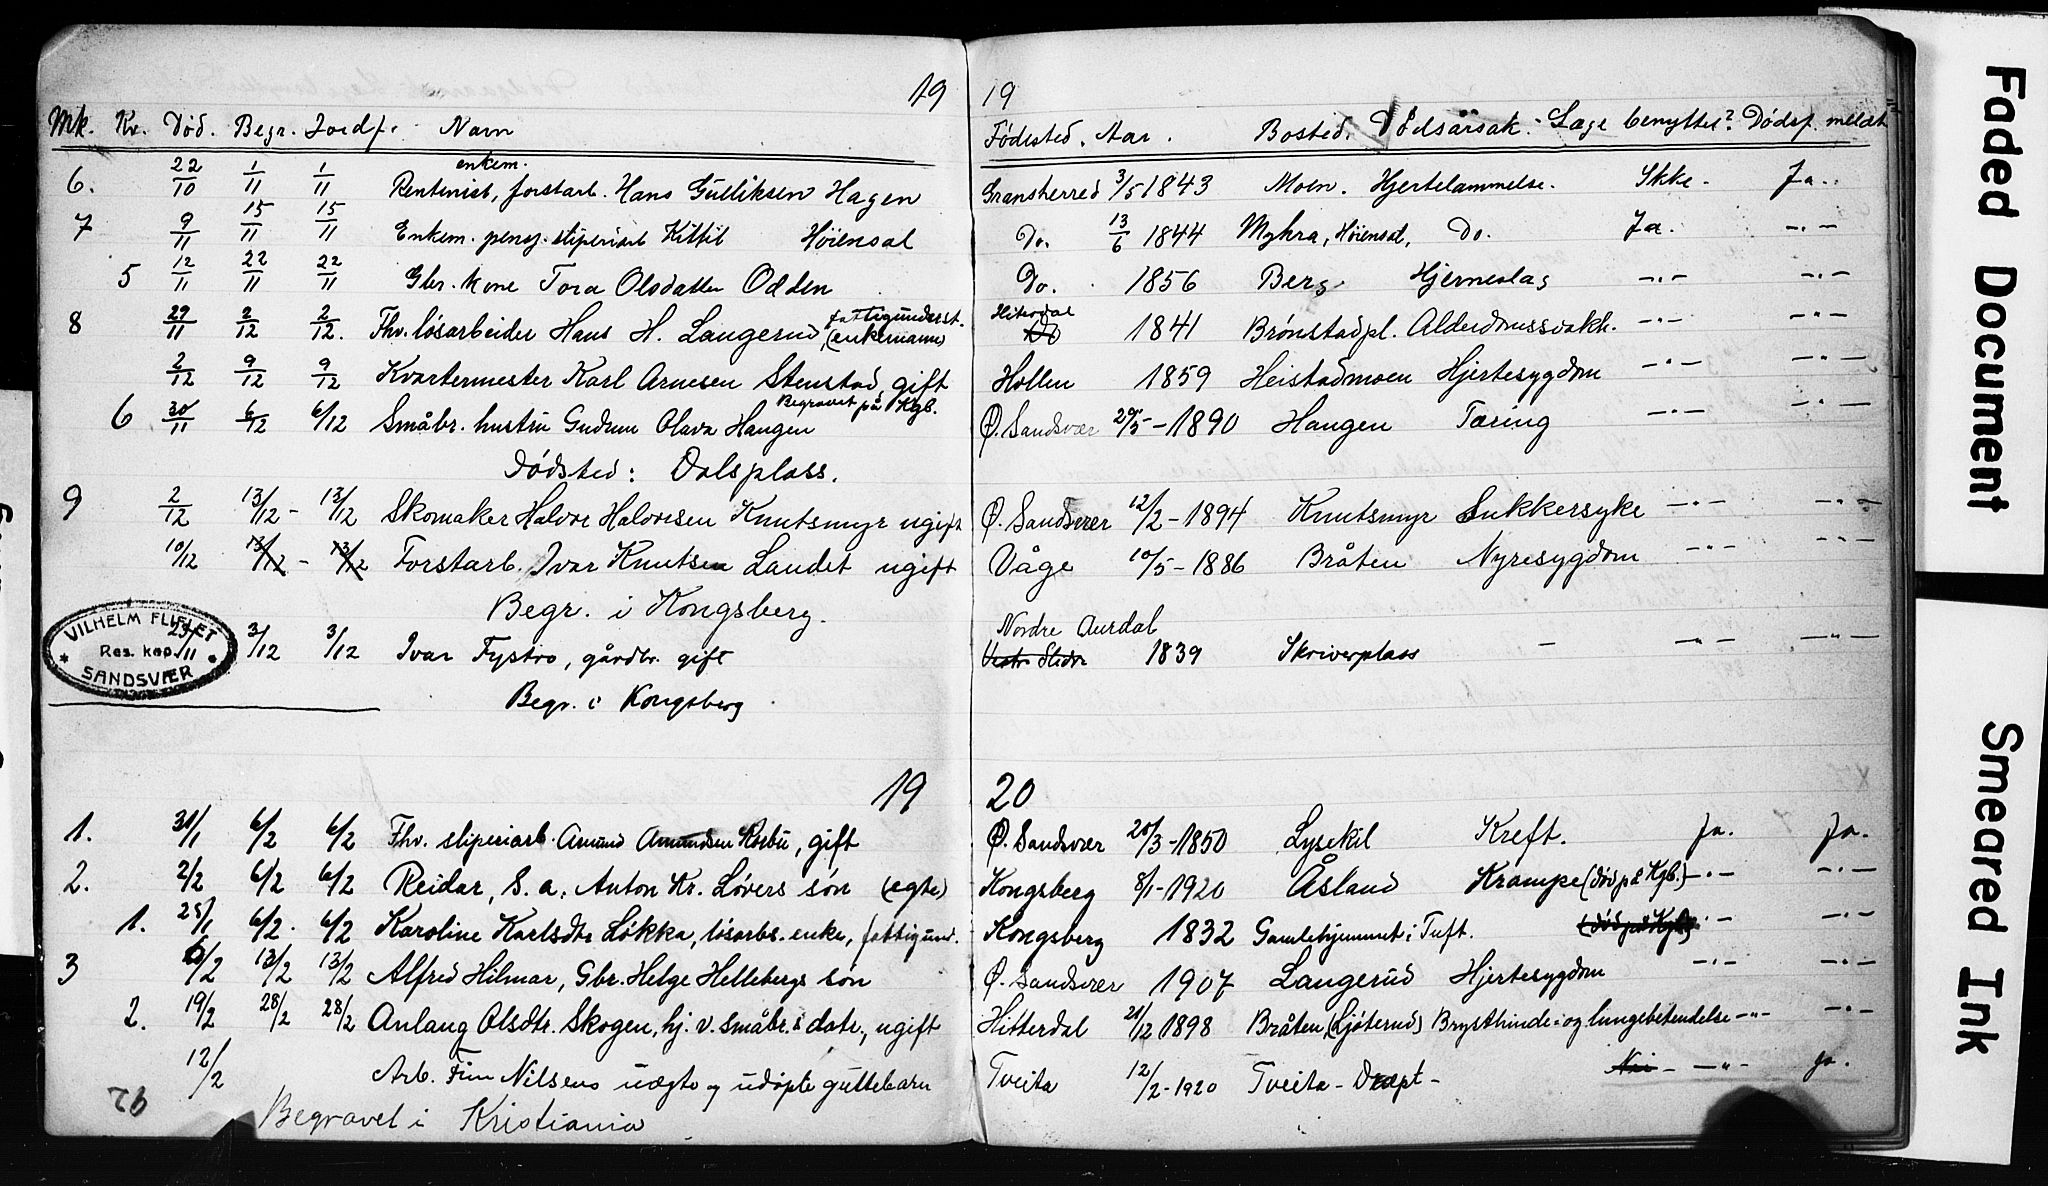 19 19
Mk. Kv. Død. Begr. Jordf. Navn Fødested. Aar. Bosted. Dødsårsak. Læge benyttet? Dødsf. meldt
enkem.
6. 22/10 1/11 1/11 Rentenist, forstarb. Hans Gulliksen Hagen Gransherred 3/5 1843 Moen. Hjertelammelse. Ikke. Ja.
7 9/11 15/11 15/11 Enkem. pensj. sliperiarb Kittil Høiensal Do. 13/6 1844 Myhra, Høiensal, Do. Ja. -"-
5 12/11 22/11 22/11 Gbr. kone Tora Olsdatter Odden Do. 1856 Berg Hjerneslag -"- -"-
fattigunderst. Hiterdal
8 29/11 2/12 2/12. Fhv. løsarbeider Hans H. Langerud, (enkemann) Do 1841 Brønstadpl. Alderdomssvakh. -"- -"-
2/12 9/12 9/12 Kvartermester Karl Arnesen Stenstad, gift Hollen 1859 Heistadmoen Hjertesygdom -"- -"-
Begravet på Kgb.
6 30/11 6/12 6/12 Småbr. hustru Gudrun Olava Haugen Ø. Sandsvær 29/5-1890 Haugen Tæring -"- -"-
Dødsted: Dalsplass.
9 2/12 13/12 - 13/12 Skomaker Halvor Halvorsen Knutsmyr ugift Ø. Sandsvær 12/2-1894 Knutsmyr Sukkersyke -"- -"-
10/12 13/12 - 13/12 Forstarb. Ivar Knutsen Landet ugift Våge 10/5-1886 Bråten Nyresygdom -"- -"-
Begr. i Kongsberg.
VILHELM FLIFLET
Res. kap.
SANDSVÆR
Nordre Aurdal
23/11 3/12 3/12 Ivar Fystro, gårdbr. gift Vestre Slidre 1839 Skriverplass - -"- -"-
Begr. i Kongsberg
19 20
1. 31/1 6/2 6/2 Fhv. sliperiarb. Amund Amundsen Rosbu, gift Ø. Sandsvær 20/3-1850 Lysekil Kreft. Ja. Ja.
2. 2/2 6/2 6/2 Reidar, S. a. Anton Kr. Løvers søn (egte) Kongsberg 8/1-1920 Åsland Krampe (død på Kgb.) -"- -"-
1. 25/1 6/2. 6/2 Karoline Karlsdtr Løkka, løsarbs. enke, fattigund. Kongsberg 1832 Gamlehjemmet i Tuft. (død på Kgb.) -"- -"-
3 6/2 13/2 13/2 Alfred Hilmar, Gbr. Helge Hellebergs søn Ø. Sandsvær 1907 Langerud Hjertesygdom -"- -"-
2. 19/2 28/2 28/2 Anlaug Olsdtr. Skogen, hj. v. småbr.s datr., ugift Hitterdal 21/12 1898 Bråten (Ljøterud) Brysthinde- og lungebetendelse -"- -"-
12/2 Arb. Finn Nilsens uægte og udøpte guttebarn Tveita 12/2-1920 Tveita - Dræpt - Nei - -"- Ja.
76 Begravet i Kristiania
Faded Document
Smeared Ink